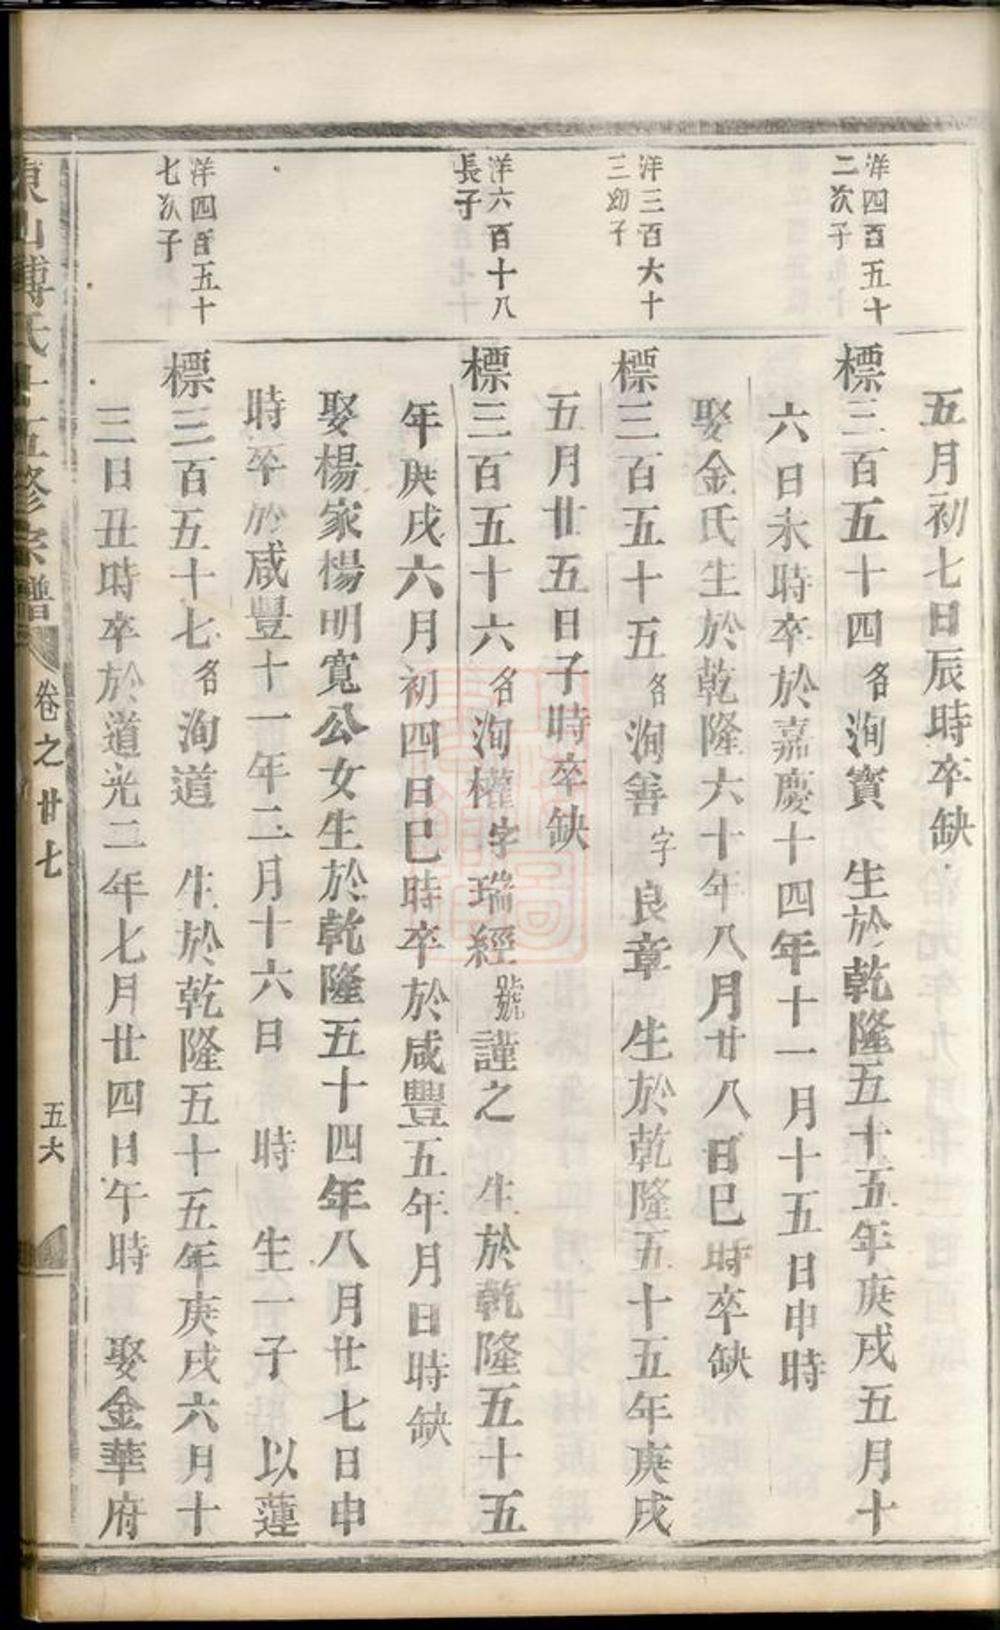 五月初七日辰時卒缺
洋四百五十
二次子
標三百五十四名洵寶　生於乾隆五十五年庚戌五月十
六日未時卒於嘉慶十四年十一月十五日申時
娶金氏生於乾隆六十年八月廿八日巳時卒缺
洋三百六十
三幼子
標三百五十五名洵善字良章　生於乾隆五十五年庚戌
五月廿五日子時卒缺
洋六百十八
長子
標三百五十六名洵權字瑞經號謹之　生於乾隆五十五
年庚戌六月初四日巳時卒於咸豐五年月日時缺
娶楊家楊明寬公女生於乾隆五十四年八月廿七日申
時卒於咸豐十一年二月十六日　時　生一子　以蓮
洋四百五十
七次子
標三百五十七名洵道　生於乾隆五十五年庚戌六月十
三日丑時卒於道光二年七月廿四日午時　娶金華府
東山傅氏十五修宗譜
卷之廿七
五六